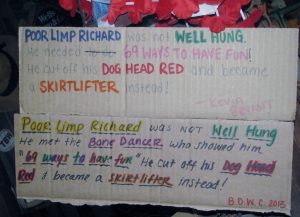 POOR LIMP RICHARD was not WELL HUNG.
He needed 69 WAYS TO HAVE FUN!
He cut off his DOG HEAD RED and became
a SKIRTLIFTER instead!
Poor Limp Richard was not Well Hung
He met the Bone Dancer who showed him
"69 ways to have fun" He cut off his Dog Head
Red & became a skirtlifter instead!
B.D.W.C. 2013